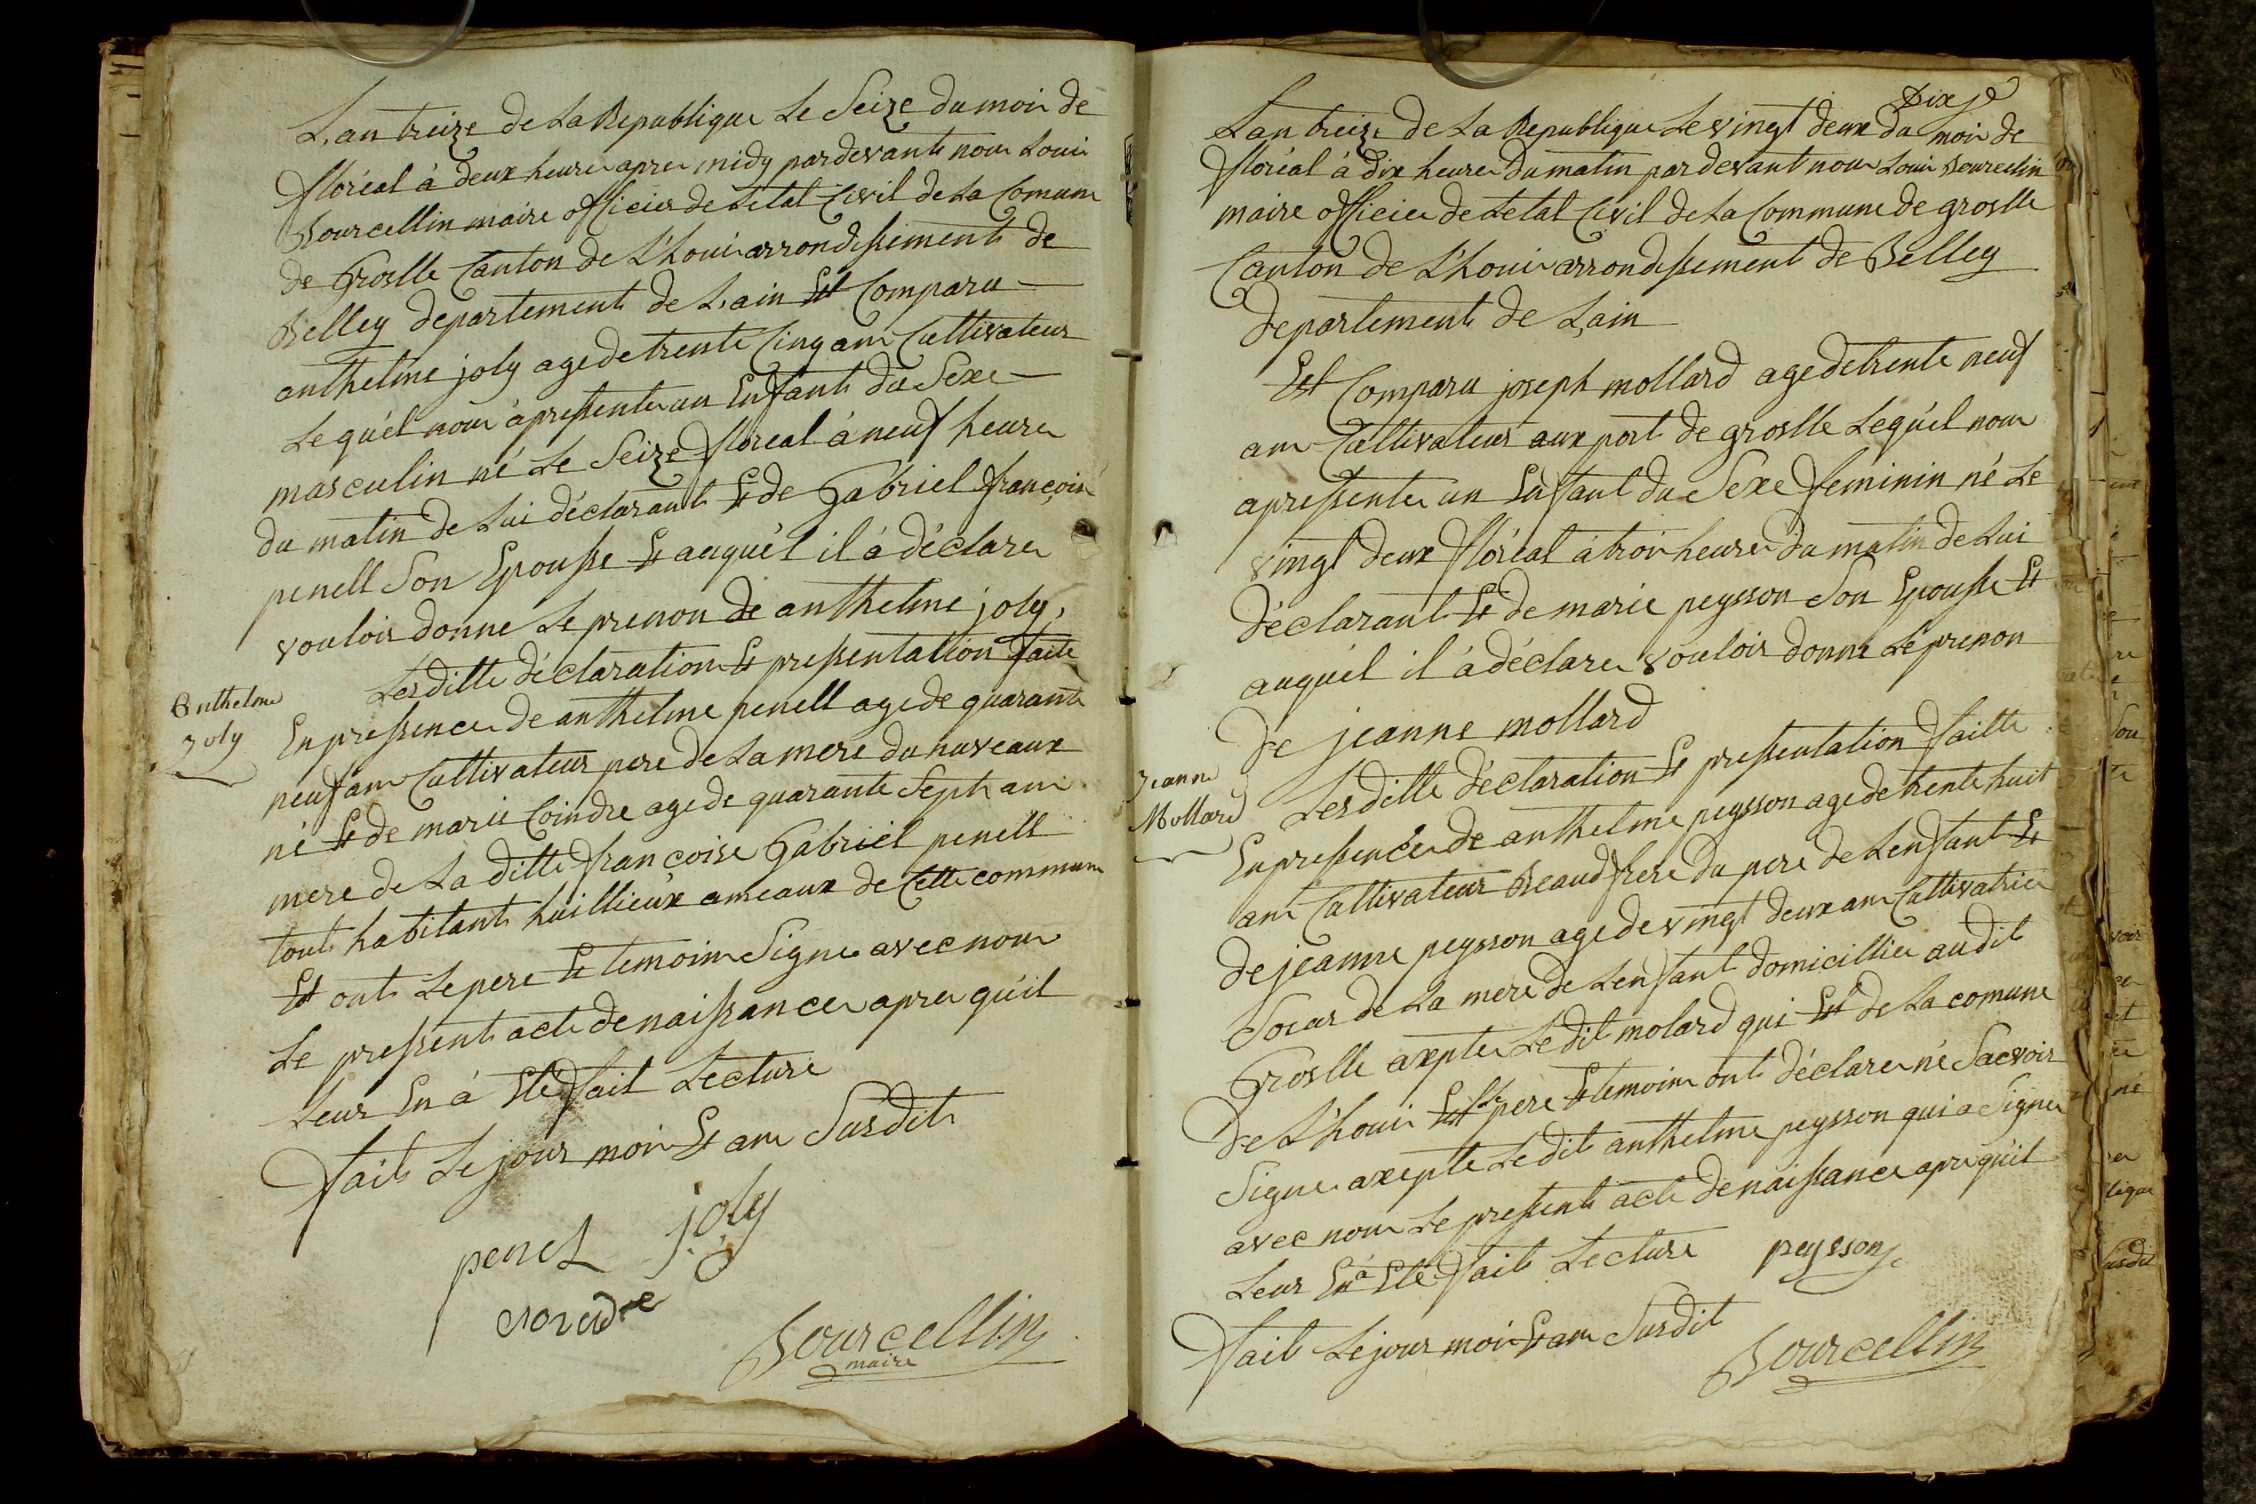 L'an treize de La Republique Le Seize du mois de
floréal à deux heures apres midy pardevants nous Louis
Bourcellin maire officier de Letat Civil de La Comune
de Groslle Canton de L'houis arrondissements de
Belley departements de L'ain Est Comparu
anthelme joly age de trente Cinq ans Cultivateur
Lequ'el nous à pressente un Enfants du Sexe
masculin né Le Seize floreal à neuf heures
du matin de Lui déclarants Et de Gabriel françoise
penell Son Epousse Et auquél il à déclarer
vouloir donne Le prenon de anthelme joly,
Lesditte déclaration Et pressentation faite
En pressences de anthelme penell age de quarante
neuf ans Cultivateur pere de La mere du nuveaux
né Et de marie Coindre age de quarante Sept ans
mere de La ditte françoise Gabriel penell
touts habitants huillieux ameaux de Cette commune
Et onts Le pere Et temoins Signe avec nous
Le pressents acte de naissances apres qu'il
Leur En à Eté fait Lecture
Faits Le jour mois Et ans Susdits
Anthelme
Joly
penel joly
coindre
Bourcellin
maire
Dix
L'an treize de La Republique Le vingt deux du mois de
floréal à dix heures du matin pardevant nous Louis Bourcellin
maire officier de Letat Civil de La Commune de groslle
Canton de L'houis arrondissement de Belley
departements de L'ain
Est Comparu joseph mollard age de trente neuf
ans Cultivateur aux ports de groslle Lequ'el nous
apressente un Enfant du Sexe feminin né Le
vingt deux floréal à trois heures du matin de Lui
déclarant Et de marie peysson Son Epousse Et
auquél il à déclarer vouloir donne Le prenon
de jeanne mollard
Lesditte déclaration Et pressentation faitte
En pressences de anthelme peysson age de trente huit
ans Cultivateur Beaud frere du pere de Lenfant Et
de jeanne peysson age de vingt deux ans Cultivatrice
Soeur de La mere de Lenfant domicillier audit
Groslle axepte Ledit molard qui Est de La comune
de L'houis Et Le pere Et temoins ont déclarer né Sacvoir
Signe axepte Ledit anthelme peysson qui a Signe
avec nous Le pressents acte de naissance apres qu'il
Leur En à Eté faits Lecture
Faits Le jour mois Et ans Susdit
Jeanne
Mollard
peysson
Bourcellin